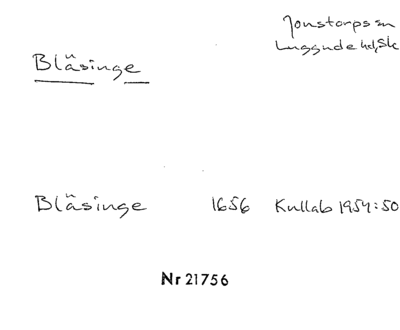 Jonstorps sn
Luggude hd, Sk
Bläsinge
Bläsinge 1656 Kullab 1954:50
Nr 21756